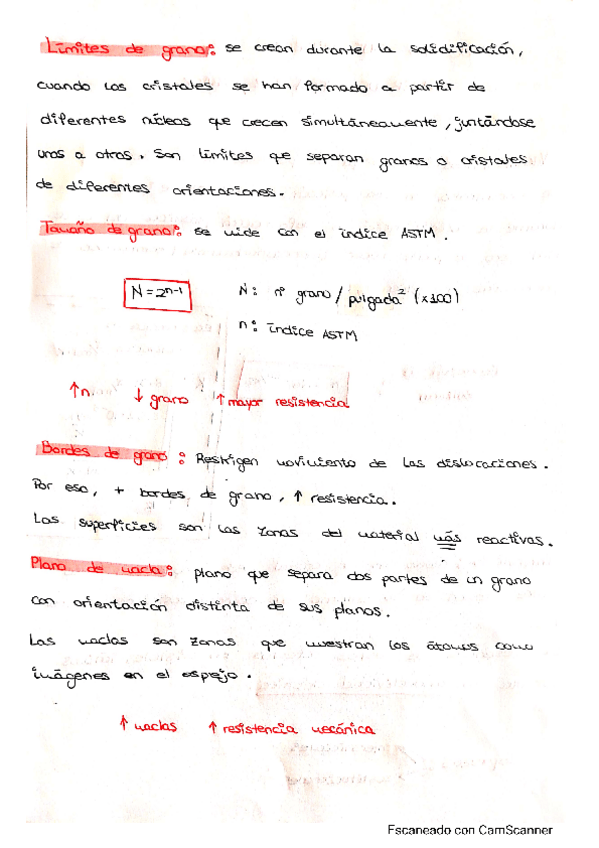 Límites de grano: se crean durante la solidificación,
cuando los cristales se han formado a partir de
diferentes núcleos que crecen simultáneamente, juntándose
unos a otros. Son límites que separan granos o cristales
de diferentes orientaciones.
Tamaño de grano: se mide con el índice ASTM.
N = 2ⁿ⁻¹ N: nº grano / pulgada² (x100)
n: índice ASTM
↑n ↓ grano ↑ mayor resistencia
Bordes de grano: Restrigen movimiento de las dislocaciones.
Por eso, + bordes de grano, ↑ resistencia.
Las superficies son las zonas del material más reactivas.
Plano de macla: plano que separa dos partes de un grano
con orientación distinta de sus planos.
Las maclas son zonas que muestran los átomos como
imágenes en el espejo.
↑ maclas ↑ resistencia mecánica
Escaneado con CamScanner